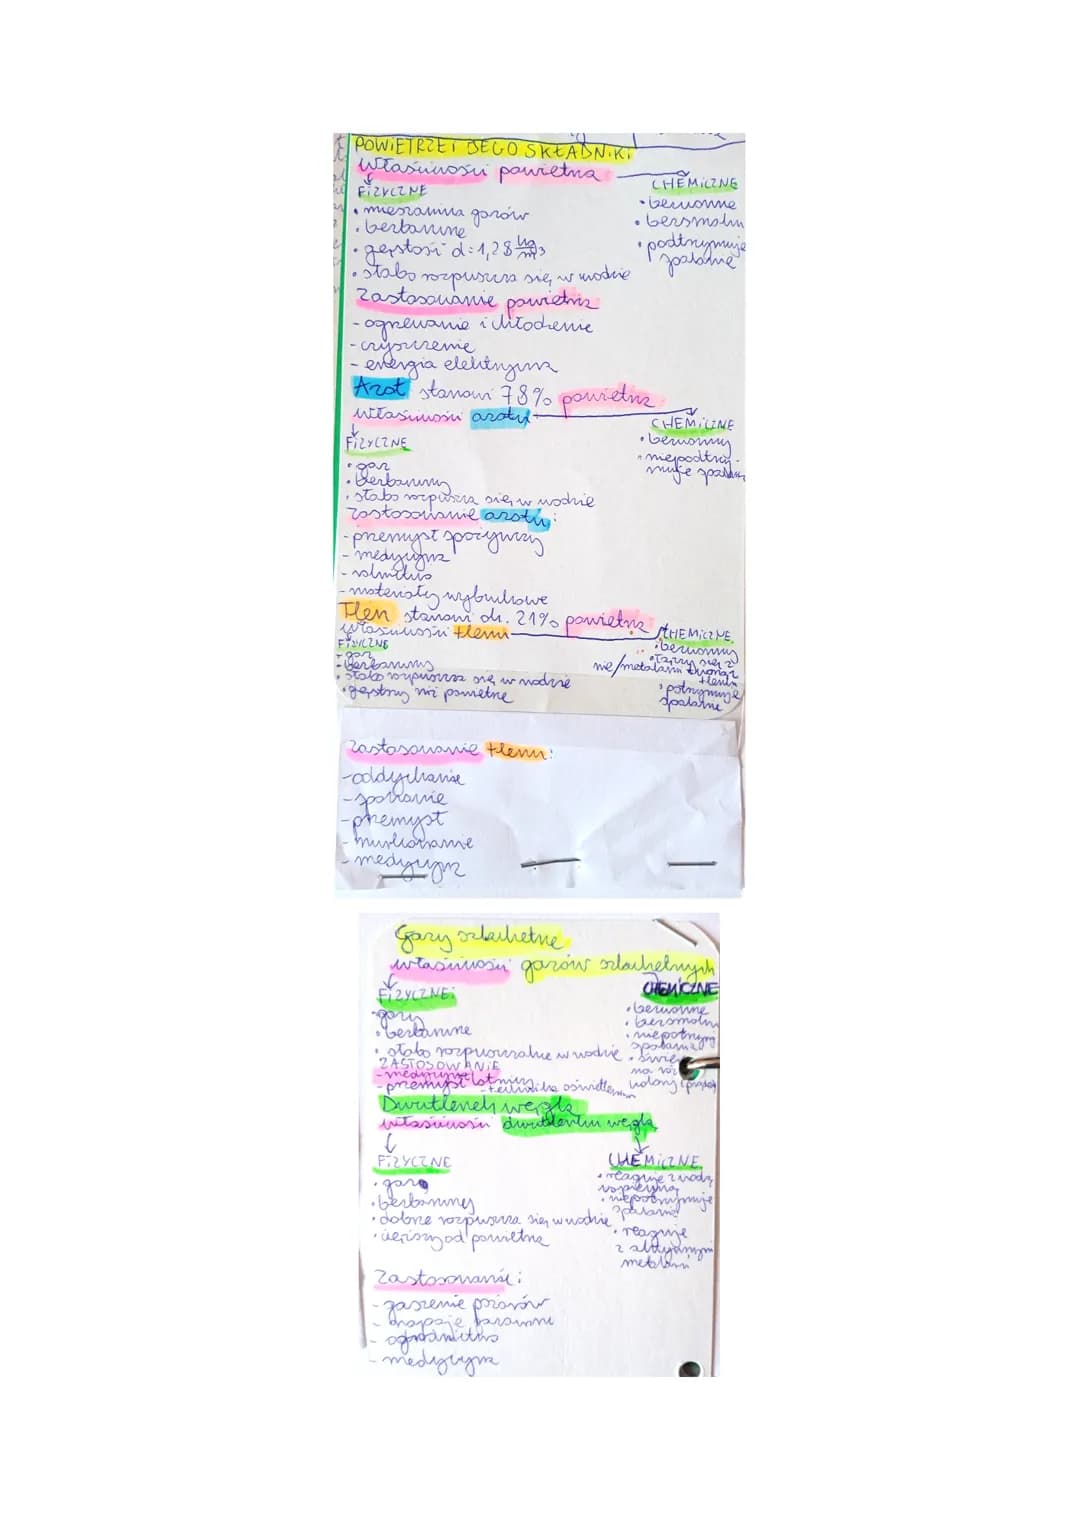 POWIETRZE I JEGO SKŁADNIKI
Właściwości powietrza
FIZYCZNE
CHEMICZNE
• mieszanina gazów
• bezbarwne
• gęstość d=1,28 kg/m3
• słabo rozpuszcza się w wodzie
• bezwonne
• bezsmakn
• podtrzymuje
spalanie
Zastosowanie powietrza
- ogrzewanie i chłodzenie
- czyszczenie
- energia elektryczna
Azot stanowi 78% powietrza
właściwości azotu
FIZYCZNE
CHEMICZNE
• gaz
• bezbarwny
• słabo rozpuszcza się w wodzie
• bezwonny
• niepodtrzy-
muje spalania
zastosowanie azotu:
- przemysł spożywczy
- medycyna
- rolnictwo
- materiały wybuchowe
Tlen stanowi ok. 21% powietrza
właściwości tlenu
FIZYCZNE
CHEMICZNE
- gaz
• bezbarwny
• słabo rozpuszcza się w wodzie
• gęstszy niż powietrze
• bezwonny
• łączy się z
nie/metalami tworząc
tlenki
• potrzymuje
spalanie
zastosowanie tlenu:
- oddychanie
- spalanie
- przemysł
- nurkowanie
- medycyna
Gazy szlachetne
właściwości gazów szlachetnych
FIZYCZNE:
CHEMICZNE
• gazy
• bezbarwne
• słabo rozpuszczalne w wodzie
• bezwonne
• bezsmakn
• niepotrzymu
spalania
• świe
na róż
kolory
ZASTOSOWANIE
- medycyna
- przemysł lotniczy
- technika oświetleniowa
Dwutlenek węgla
właściwości dwutlenku węgla
FIZYCZNE
CHEMICZNE
• gaz
• bezbarwny
• dobrze rozpuszcza się w wodzie
• cięższy od powietrza
• reaguje z wodą
wapienną
• niepotrzymuje
spalania
• reaguje
z aktywnymi
metalami
Zastosowanie:
- gaszenie pożarów
- napoje gazowane
- ogrodnictwo
- medycyna